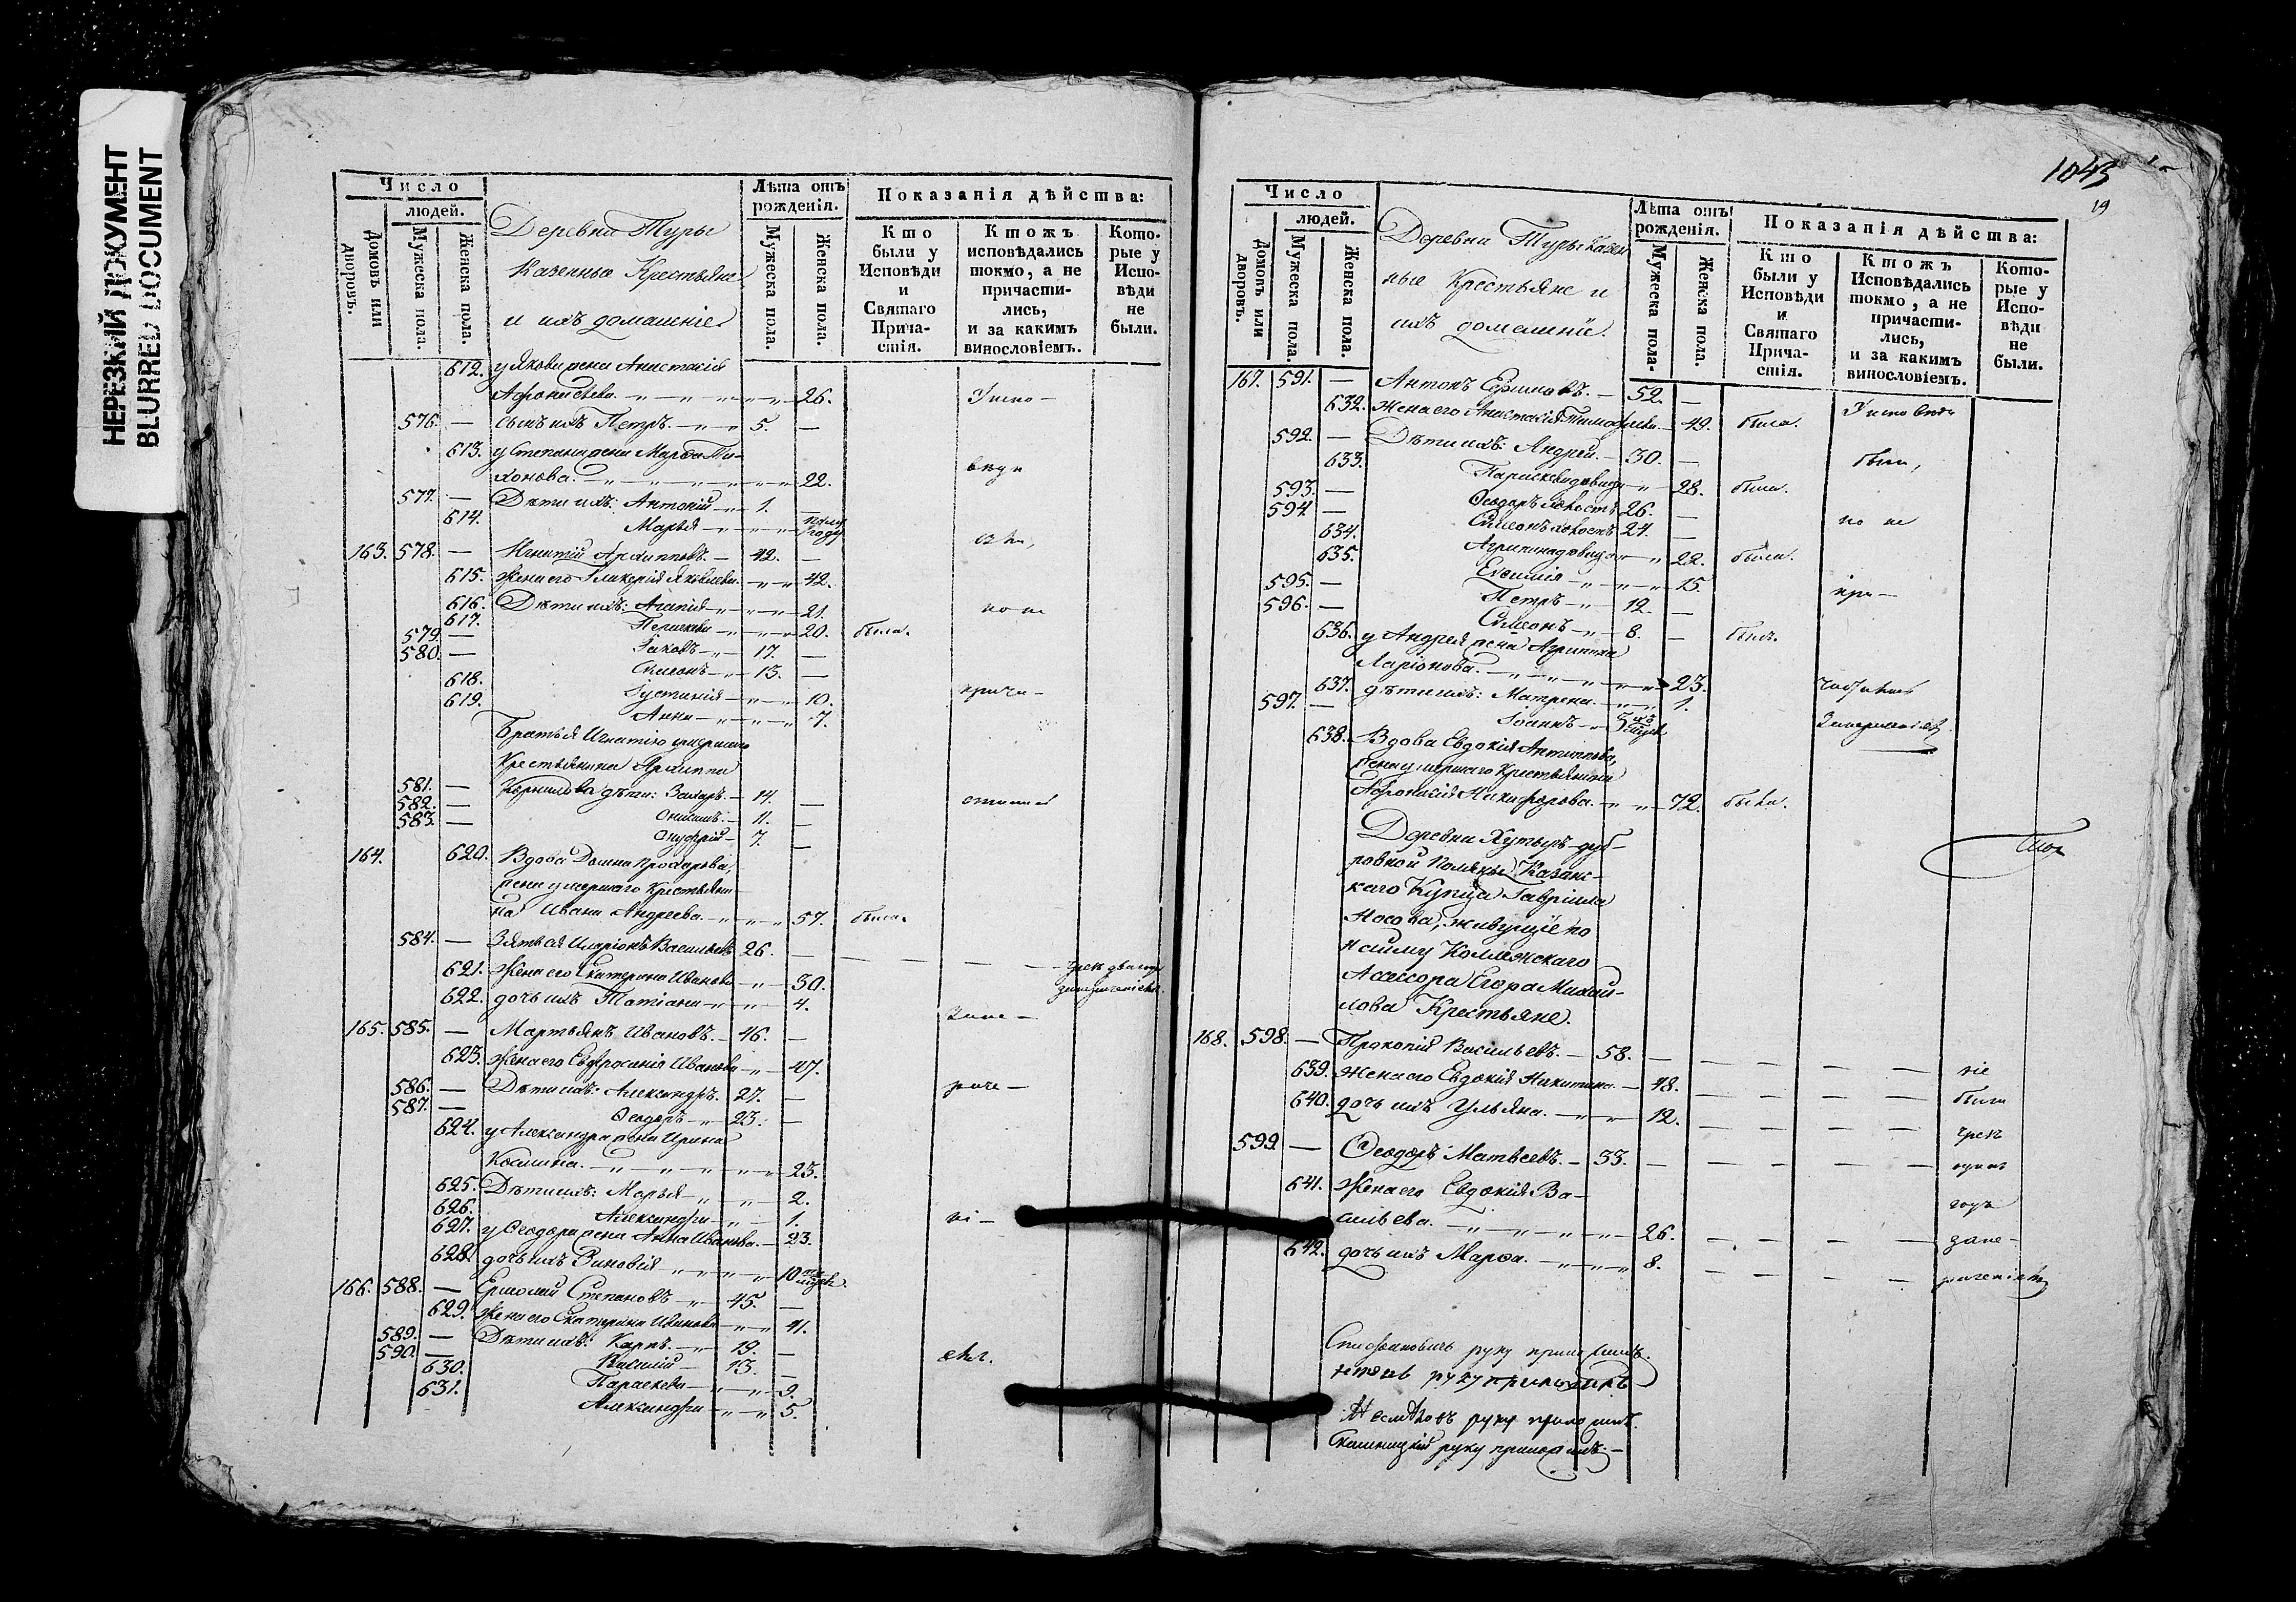 НЕРЕЗКИЙ ДОКУМЕНТ
BLURRED DOCUMENT
Число
людей.
Домовъ или дворовъ.
Мужеска пола.
Женска пола.
Деревни Туры
Казенныя Крестьяне
и ихъ домашніе
Лѣта отъ рожденія.
Мужеска пола.
Женска пола.
Показанія дѣйства:
Кто были у Исповѣди и Святаго Прича-стія.
Ктожъ исповѣдались токмо, а не причасти-лись, и за какимъ винословіемъ.
Кото-рые у Испо-вѣди не были.
612. у Якова жена Анастасія
Афонасьева. 26.
576. — сынъ ихъ Петръ. 5. —
613. у Степана жена Марѳа Ти-
хонова. 22.
577. — Дѣти ихъ: Антоній 1. —
614. Марья полу году
163. 578. — Игнатій Архиповъ. 42. —
615. Жена его Гликерія Яковлева. 42.
616. Дѣти ихъ: Агапія 21. но не
617. Пелагея 20. была.
579. — Іаковъ 17. —
580. — Симеонъ 13. —
618. Іустинія 10. прича-
619. Анна 7.
Братья Игнатію умершаго
Крестьянина Архиппа
581. — Корнилова дѣти: Захаръ. 14. —
582. — Онисимъ. 11. —
583. — Онуфрій 7. —
164. 620. Вдова Домна Прохорова,
жена умершаго крестьяни-
на Ивана Андреева. 57. была.
584. — Зять ея Иларіонъ Васильевъ 26. —
621. Жена его Екатерина Иванова 30.
622. дочь ихъ Татіана 4.
165. 585. — Мартьянъ Ивановъ. 46. —
623. Жена его Евфросинія Иванова 47.
586. — Дѣти ихъ: Александръ. 27. —
587. — Ѳеодоръ 23. —
624. у Александра жена Ирина
Космина. 23.
625. Дѣти ихъ: Марья 2.
626. Александра 1.
627. у Ѳеодора жена Анна Иванова. 23.
628. дочь ихъ Зиновія 10 ти
166. 588. — Ермолай Степановъ 45. —
629. Жена его Екатерина Иванова 41.
589. — Дѣти ихъ: Карпъ. 19. —
590. — Василій 13. —
630. Параскева 9.
631. Александра 5.
1043
19
Число
людей.
Домовъ или дворовъ.
Мужеска пола.
Женска пола.
Деревни Туры Казен
ные Крестьяне и
ихъ домашніе.
Лѣта отъ рожденія.
Мужеска пола.
Женска пола.
Показанія дѣйства:
Кто были у Исповѣди и Святаго Прича-стія.
Ктожъ Исповѣдались токмо, а не причасти-лись, и за какимъ винословіемъ.
Кото-рые у Испо-вѣди не были.
167. 591. — Антонъ Ефимовъ. 52. —
632. Жена его Анастасія Тимофеева. 49. была.
592. — Дѣти ихъ: Андрей. 30. —
633. Параскева девица 28. была.
593. — Ѳеодоръ холостъ 26. —
594. — Симеонъ холостъ 24. — но не
634. Агрипина девица 22. была.
635. Евѳимія 15.
595. — Петръ 12. —
596. — Симеонъ 8. — былъ.
636. у Андрея жена Агрипина
Ларіонова. 23.
637. дѣти ихъ: Матрена 1.
597. — Іоаннъ
638. Вдова Евдокія Антипова,
жена умершаго Крестьянина
Никифорова. 72. была.
Деревни Хутыръ дуб-
ровкой Поляны Казанс-
каго Купца Гавріила
Носова, живущіе по
найму Коллежскаго
Асессора Егора Михай-
лова Крестьяне.
168. 598. — Прокопій Васильевъ. 58. —
639. Жена его Евдокія Никитина. 48. были
640. дочь ихъ Ульяна. 12. чрезъ
599. — Ѳеодоръ Матвеевъ. 33. —
641. Жена его Евдокія Ва-
сильева. 26.
642. дочь ихъ Марѳа. 8.
руку приложилъ.
руку приложилъ
руку приложилъ.
руку приложилъ.